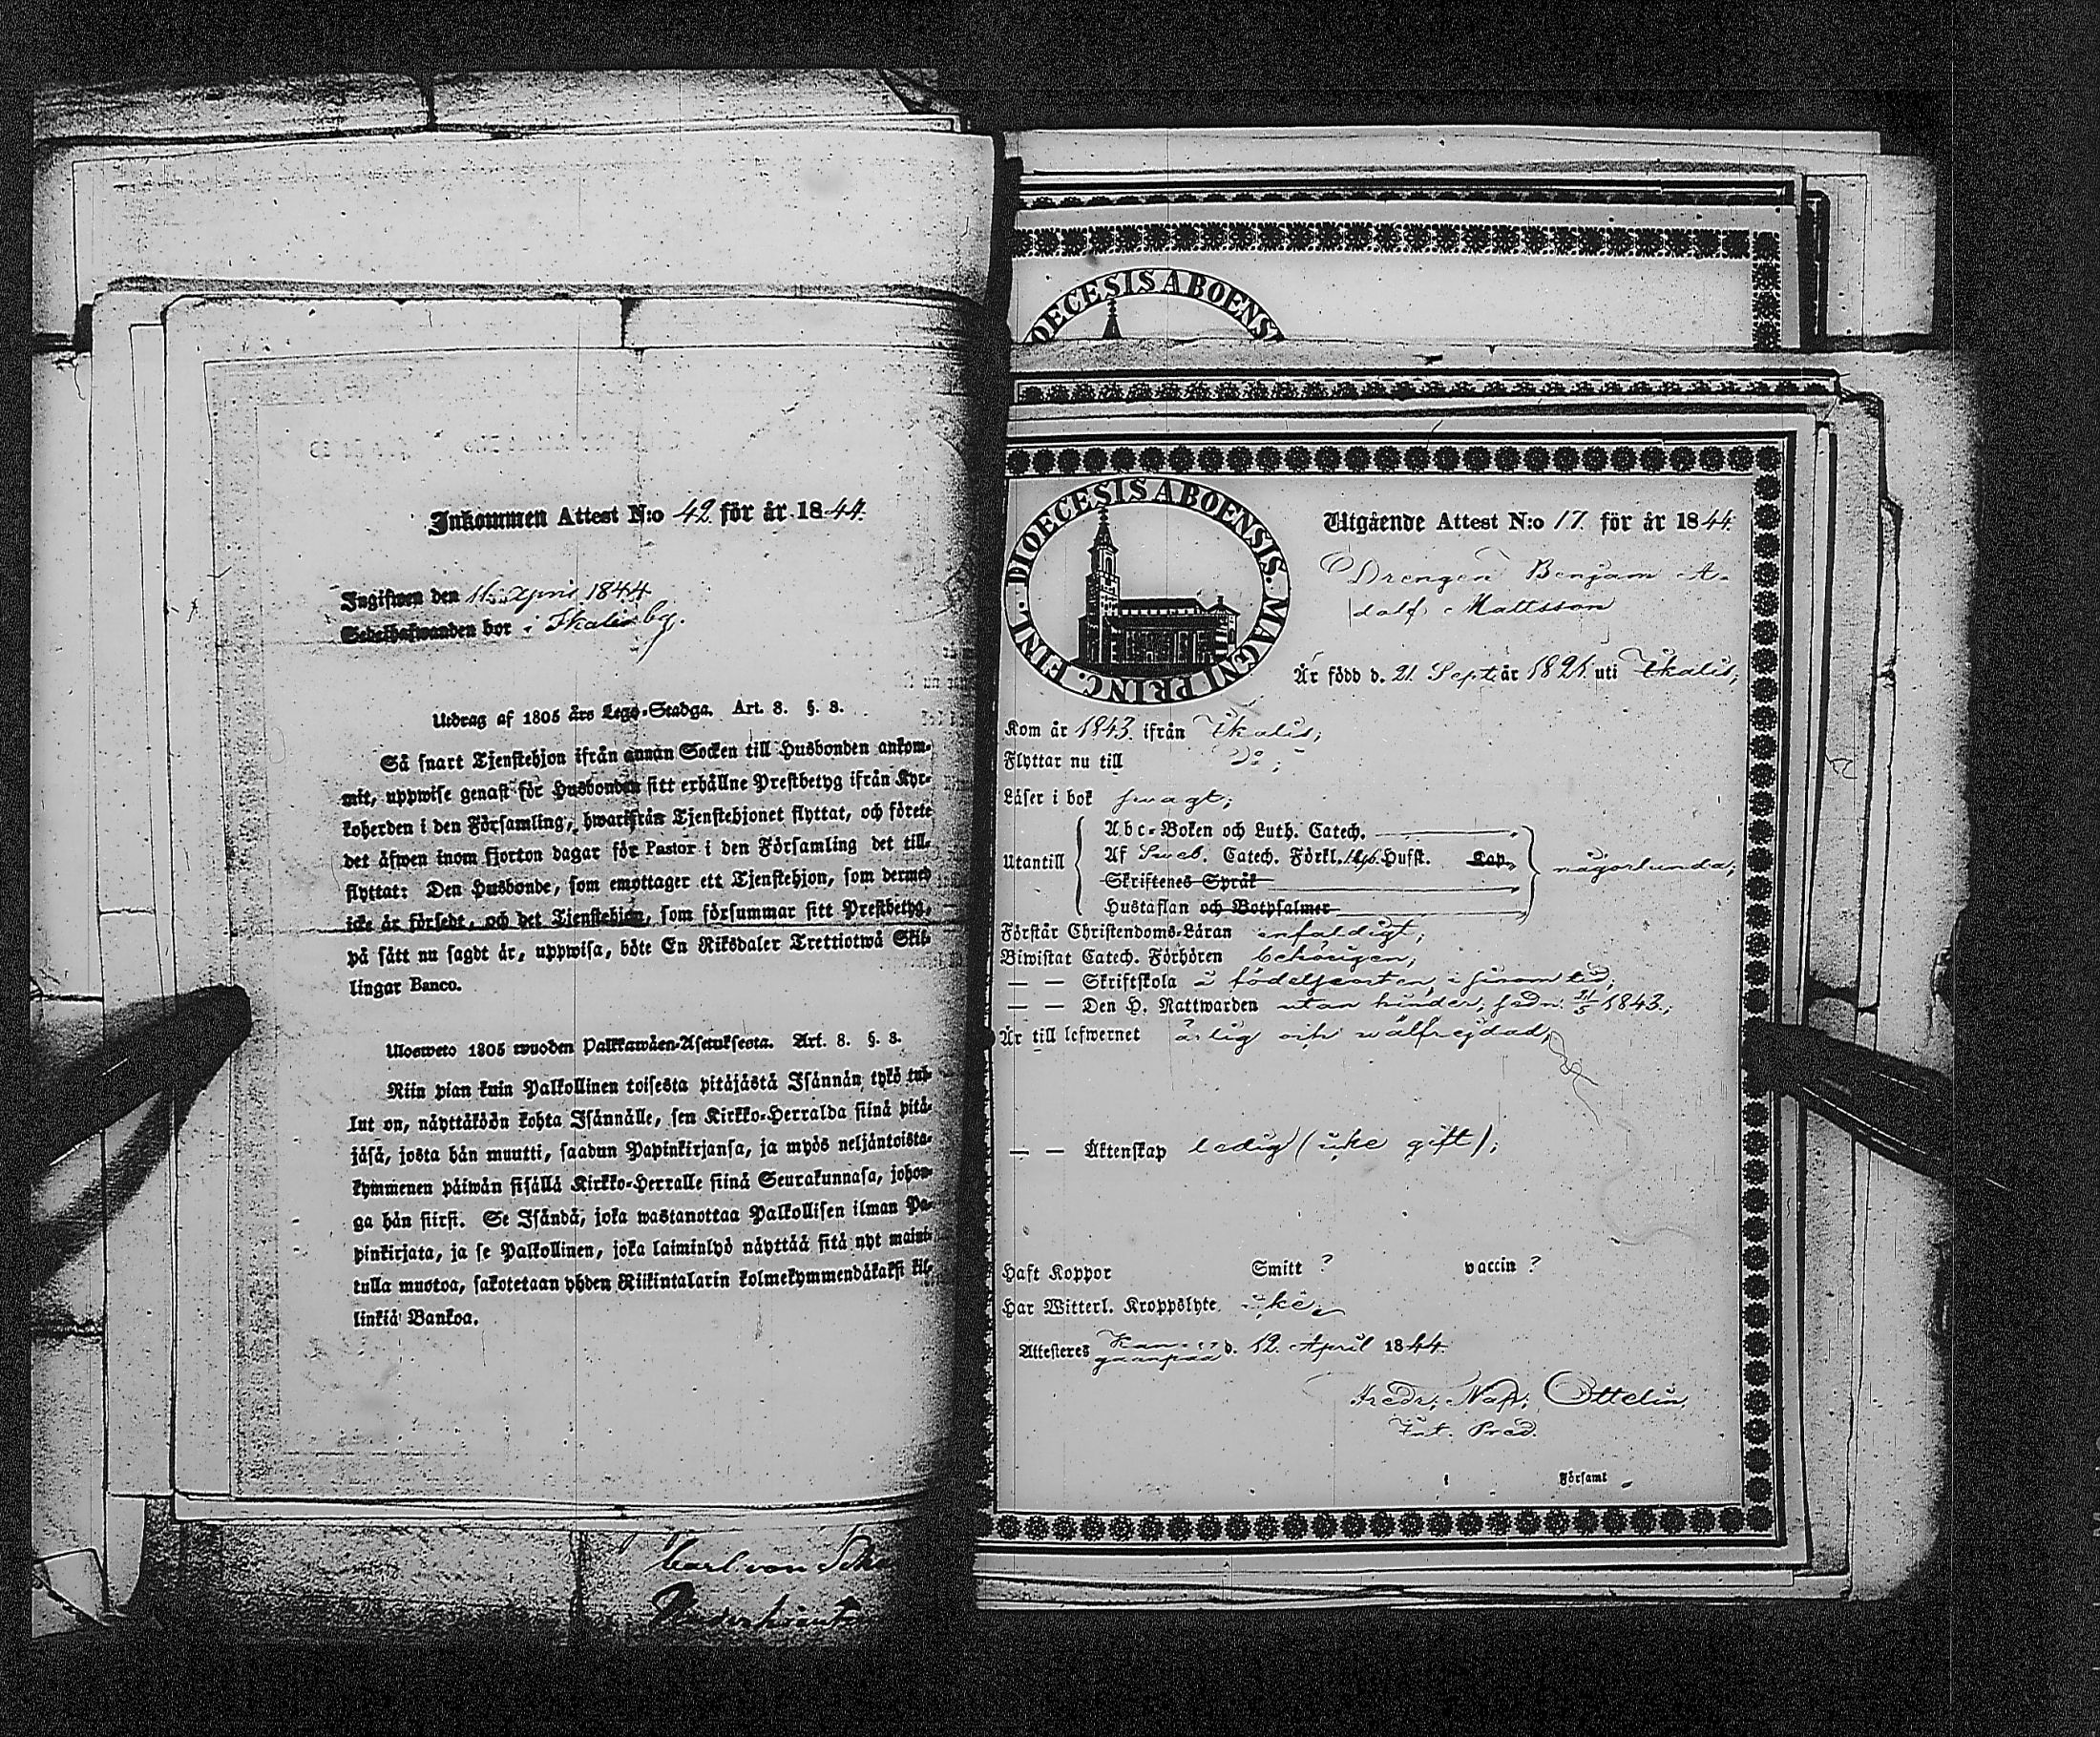 Inkommen Attest N:o 42. för år 1844.
Ingifwen den 16. April 1844
Sedelhafwanden bor i Ikalis by.
Utdrag af 1805 års Lego-Stadga. Art. 8. §. 8.
Så snart Tjenstehjon ifrån annan Socken till Husbonden ankom-
mit, uppwise genast för Husbonden sitt erhållne Prestbetyg ifrån Kyr-
koherden i den Församling, hwarifrån Tjenstehjonet flyttat, och förete
det äfwen inom fjorton dagar för Pastor i den Församling det till-
flyttat: Den Husbonde, som emottager ett Tjenstehjon, som dermed
icke är försedt, och det Tjenstehjon, som försummar sitt Prestbetyg,
på sätt nu sagdt är, uppwisa, böte En Riksdaler Trettiotwå Skil-
lingar Banco.
Ulosweto 1805 wuoden Palkkawäen-Asetuksesta. Art. 8. §. 8.
Niin pian kuin Palkollinen toisesta pitäjästä Isännän tykö tul-
lut on, näyttäköön kohta Isännälle, sen Kirkko-Herralda siinä pitä-
jäsä, josta hän muutti, saadun Papinkirjansa, ja myös neljäntoista-
kymmenen päiwän sisällä Kirkko-Herralle siinä Seurakunnasa, johon-
ga hän siirsi. Se Isändä, joka wastanottaa Palkollisen ilman Pa-
pinkirjata, ja se Palkollinen, joka laiminlyö näyttää sitä nyt maini-
tulla muotoa, sakotetaan yhden Riikintalarin kolmekymmendäkaksi kil-
linkiä Bankoa.
Carl von Scha
DIOECESIS ABOENS
DIOECESIS ABOENSIS. MAGNI PRINC. FINL.
Utgående Attest N:o 17. för år 1844.
Drengen Benjam A-
dolf Mattsson
Är född d. 21. Sept. år 1821. uti Ikalis;
Kom år 1843 ifrån Ikalis;
Flyttar nu till Do;
Läser i bok swagt;
Utantill
Abc-Boken och Luth. Catech.
Af Sweb. Catech. Förkl. Husst. Kap.
Skriftenes Språk
Hustaflan och Botpsalmer
någorlunda;
Förstår Christendoms-Läran enfaldigt;
Biwistat Catech. Förhören behörigen;
— — Skriftskola å födelseorten, i sinom tid;
— — Den H. Nattwarden utan hinder, sedn. 21/5 1843.;
Är till lefwernet ärlig och wälfrejdad;
— — Äktenskap ledig (icke gift);
Haft Koppor Smitt ? vaccin ?
Har Witterl. Kroppslyte icke
Attesteres Kan-
gaanpää d. 12. April 1844.
Fredr. Nap. Ottelin
Int. Pred.
i Församl